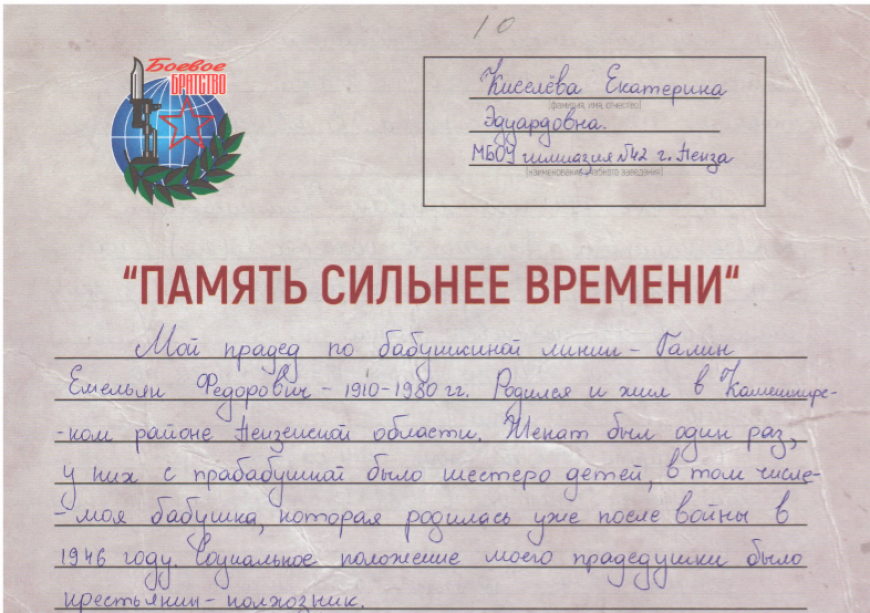 10
Боевое
БРАТСТВО
Киселёва Екатерина
(фамилия, имя, отчество)
Эдуардовна.
МБОУ гимназия №42 г. Пенза
(наименование учебного заведения)
"ПАМЯТЬ СИЛЬНЕЕ ВРЕМЕНИ"
Мой прадед по бабушкиной линии - Галин
Емельян Федорович - 1910-1980 гг. Родился и жил в Камешкирс-
-ком районе Пензенской области. Женат был один раз,
у них с прабабушкой было шестеро детей, в том числе-
- моя бабушка, которая родилась уже после войны в
1946 году. Социальное положение моего прадедушки было
крестьянин - колхозник.